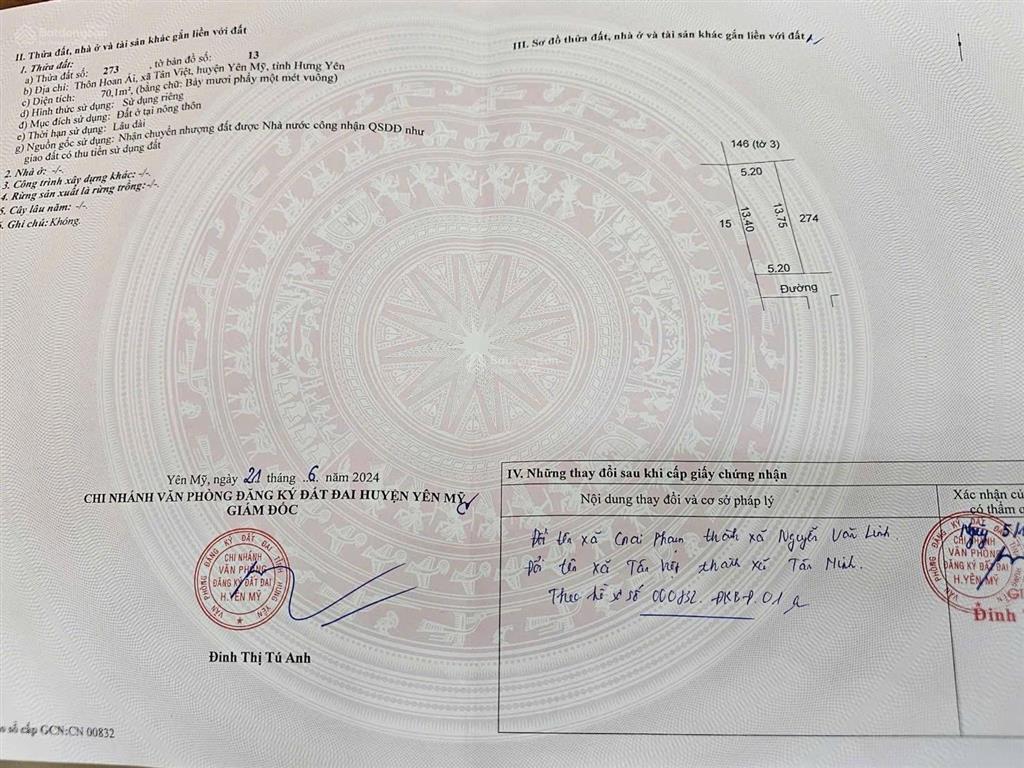 II. Thửa đất, nhà ở và tài sản khác gắn liền với đất
1. Thửa đất:
a) Thửa đất số: 273 , tờ bản đồ số: 13
b) Địa chỉ: Thôn Hoan Ái, xã Tân Việt, huyện Yên Mỹ, tỉnh Hưng Yên
c) Diện tích: 70,1m², (bằng chữ: Bảy mươi phẩy một mét vuông)
d) Hình thức sử dụng: Sử dụng riêng
đ) Mục đích sử dụng: Đất ở tại nông thôn
e) Thời hạn sử dụng: Lâu dài
g) Nguồn gốc sử dụng: Nhận chuyển nhượng đất được Nhà nước công nhận QSDĐ như
giao đất có thu tiền sử dụng đất
2. Nhà ở: -/-.
3. Công trình xây dựng khác: -/-.
4. Rừng sản xuất là rừng trồng:-/-.
5. Cây lâu năm: -/-.
6. Ghi chú: Không.
III. Sơ đồ thửa đất, nhà ở và tài sản khác gắn liền với đất
146 (tờ 3)
5.20
15
13.40
13.75
274
5.20
Đường
Batdongsan
Yên Mỹ, ngày 21 tháng ..6. năm 2024
CHI NHÁNH VĂN PHÒNG ĐĂNG KÝ ĐẤT ĐAI HUYỆN YÊN MỸ
GIÁM ĐỐC
VĂN PHÒNG ĐĂNG KÝ ĐẤT ĐAI TỈNH HƯNG YÊN
CHI NHÁNH
VĂN PHÒNG
ĐĂNG KÝ ĐẤT ĐAI
H.YÊN MỸ
Đinh Thị Tú Anh
số cấp GCN:CN 00832
IV. Những thay đổi sau khi cấp giấy chứng nhận
Nội dung thay đổi và cơ sở pháp lý
Đổi tên xã Giai Phạm thành xã Nguyễn Văn Linh
Đổi tên xã Tân Việt thành xã Tân Minh.
Theo hồ sơ số 000832.
Xác nhận củ
có thẩm q
CHI NHÁNH
VĂN PHÒNG
ĐĂNG KÝ ĐẤT ĐAI
H.YÊN MỸ
Đinh